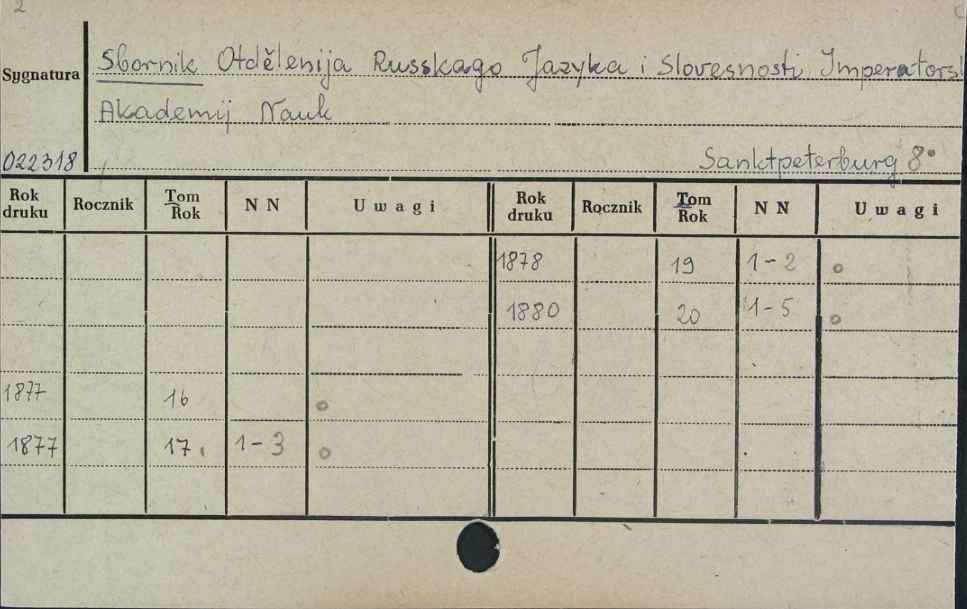 2
Sbornik Otdělenija Russkago Jazyka i Slovesnosti Imperators
Sygnatura
Akademij Nauk
022318
Sanktpeterburg 8°
Rok druku Rocznik Tom Rok N N Uwagi Rok druku Rocznik Tom Rok N N Uwagi
1878 19 1-2 o
1880 20 1-5 o
1877 16 o
1877 17. 1-3 o